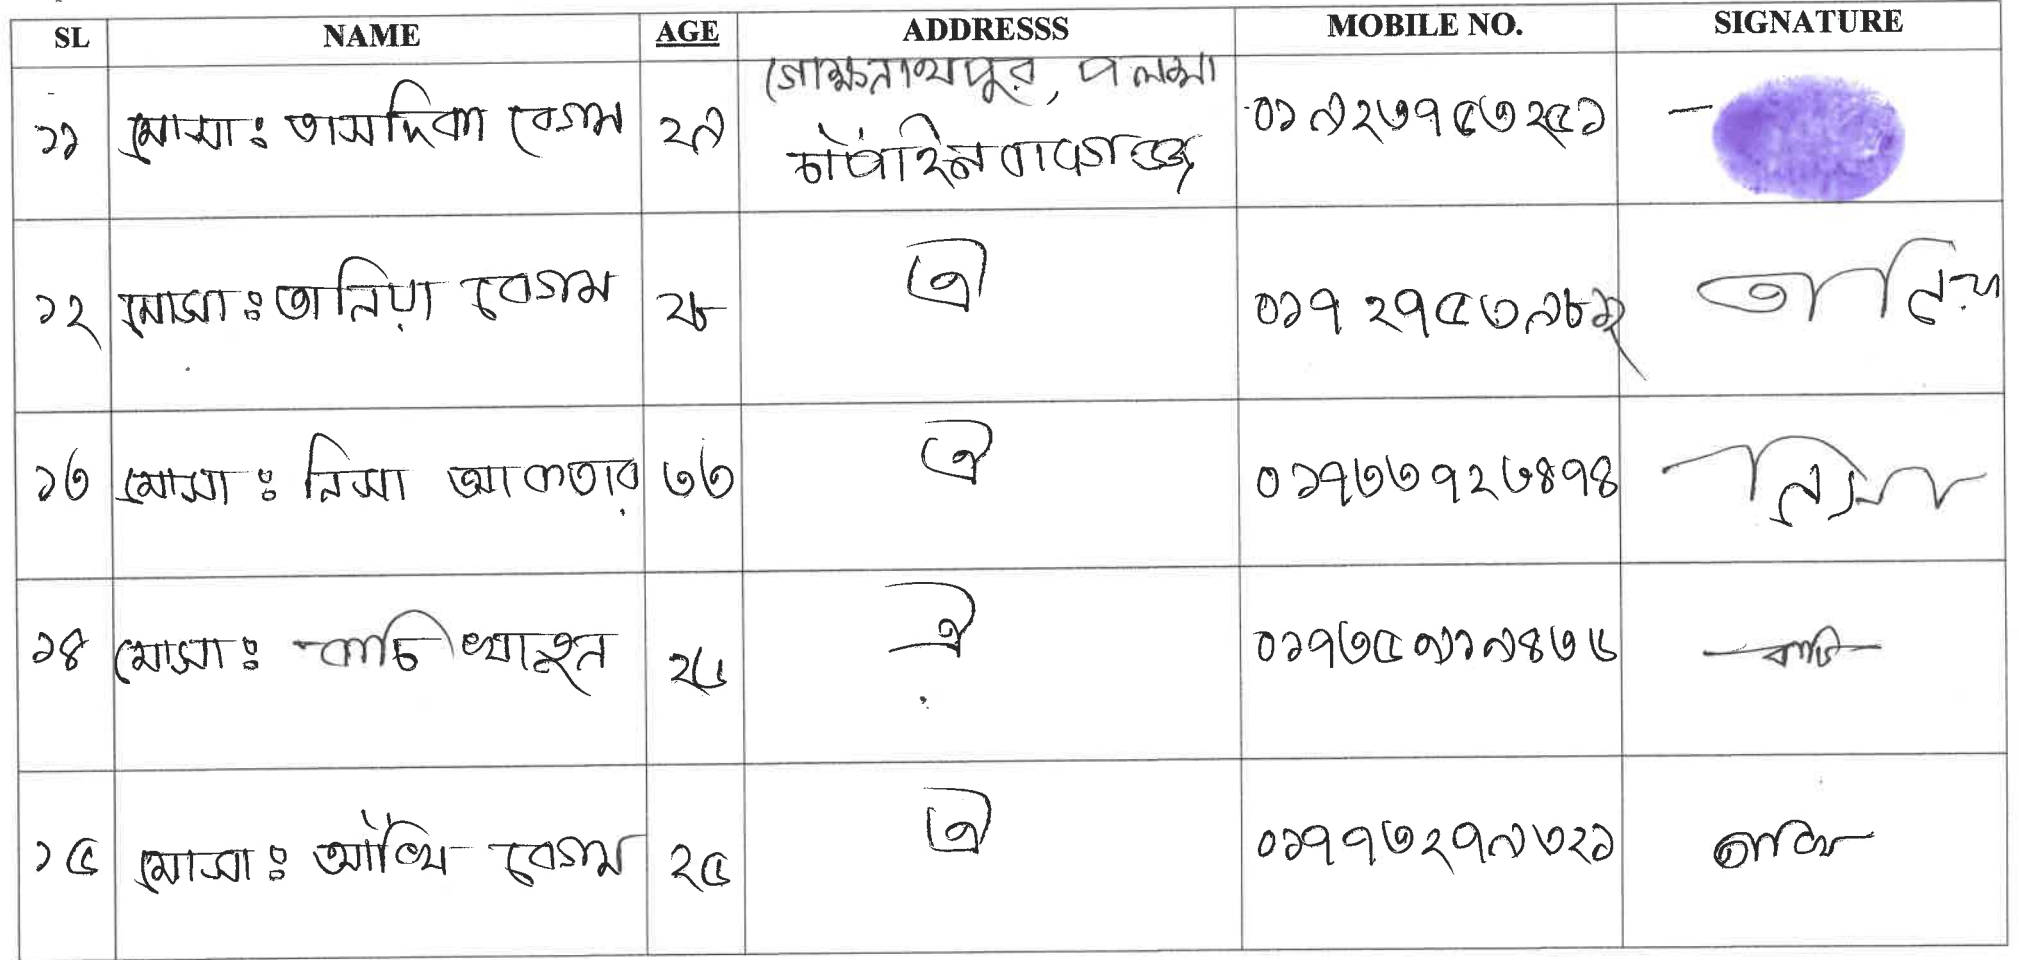 SL NAME AGE ADDRESSS MOBILE NO. SIGNATURE
১১ মোসাঃ তাসদিকা বেগম ২৯ চাঁপাইনবাবগঞ্জ ০১৯২৩৭৫৩২৫১
১২ মোসাঃ তানিয়া বেগম ২৮ ঐ ০১৭২৭৫৩৯৮১২ তানিয়া
১৩ মোসাঃ নিসা আকতার ৩৩ ঐ ০১৭৩৩৭২৩৪৭৪ নিসা
১৪ মোসাঃ কাচি খাতুন ২৫ ঐ ০১৭৩৫৯১৯৪৩৬ কাচি
১৫ মোসাঃ আঁখি বেগম ২৫ ঐ ০১৭৭৩২৭৯৩২১ আখি